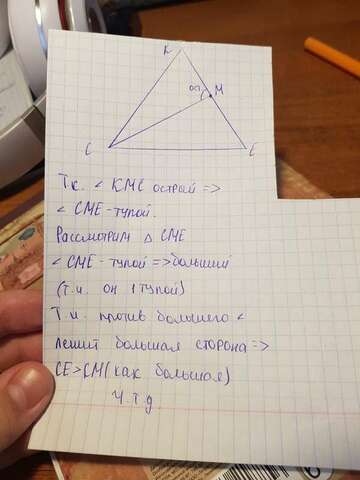 К
ос
М
С
Е
Т.к. < КМС острый =>
< СМЕ - тупой.
Рассмотрим △ СМЕ
< СМЕ - тупой => больший
(т.к. он 1 тупой)
Т.к. против большего <
лежит большая сторона =>
СЕ > СМ (как большая)
Ч.т.д
6